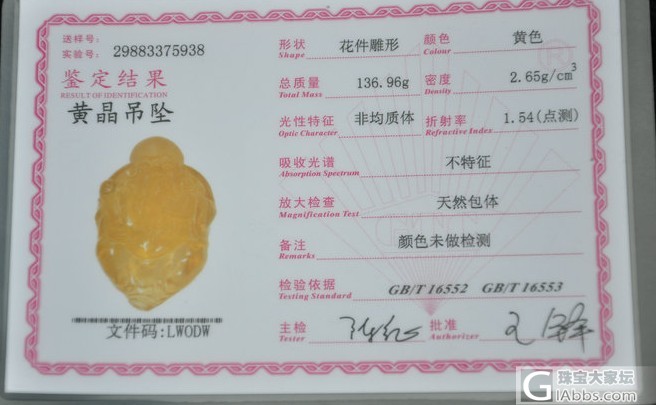 送样号:
实验号: 29883375938
鉴定结果
RESULT OF IDENTIFICATION
黄晶吊坠
文件码:LWODW
形状 花件雕形 颜色 黄色
Shape Colour
总质量 136.96g 密度 2.65g/cm³
Total Mass Density
光性特征 非均质体 折射率 1.54(点测)
Optic Character Refractive Index
吸收光谱 不特征
Absorption Spectrum
放大检查 天然包体
Magnification Test
备注 颜色未做检测
Remarks
检验依据 GB/T 16552 GB/T 16553
Testing Standard
主检 批准
Tester Authorizer
珠宝大家坛
GIAbbs.com